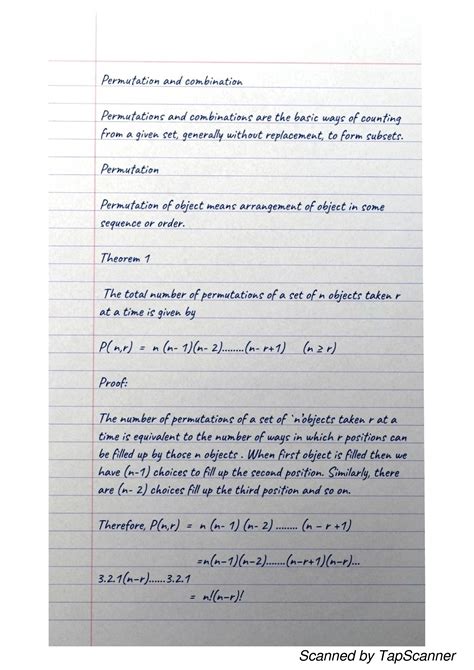 Permutation and combination
Permutations and combinations are the basic ways of counting
from a given set, generally without replacement, to form subsets.
Permutation
Permutation of object means arrangement of object in some
sequence or order.
Theorem 1
The total number of permutations of a set of n objects taken r
at a time is given by
P( n,r) = n (n- 1)(n- 2)........(n- r+1) (n ≥ r)
Proof:
The number of permutations of a set of `n'objects taken r at a
time is equivalent to the number of ways in which r positions can
be filled up by those n objects . When first object is filled then we
have (n-1) choices to fill up the second position. Similarly, there
are (n- 2) choices fill up the third position and so on.
Therefore, P(n,r) = n (n- 1) (n- 2) ........ (n – r +1)
=n(n–1)(n–2).......(n–r+1)(n–r)...
3.2.1(n–r)......3.2.1
= n!(n–r)!
Scanned by TapScanner